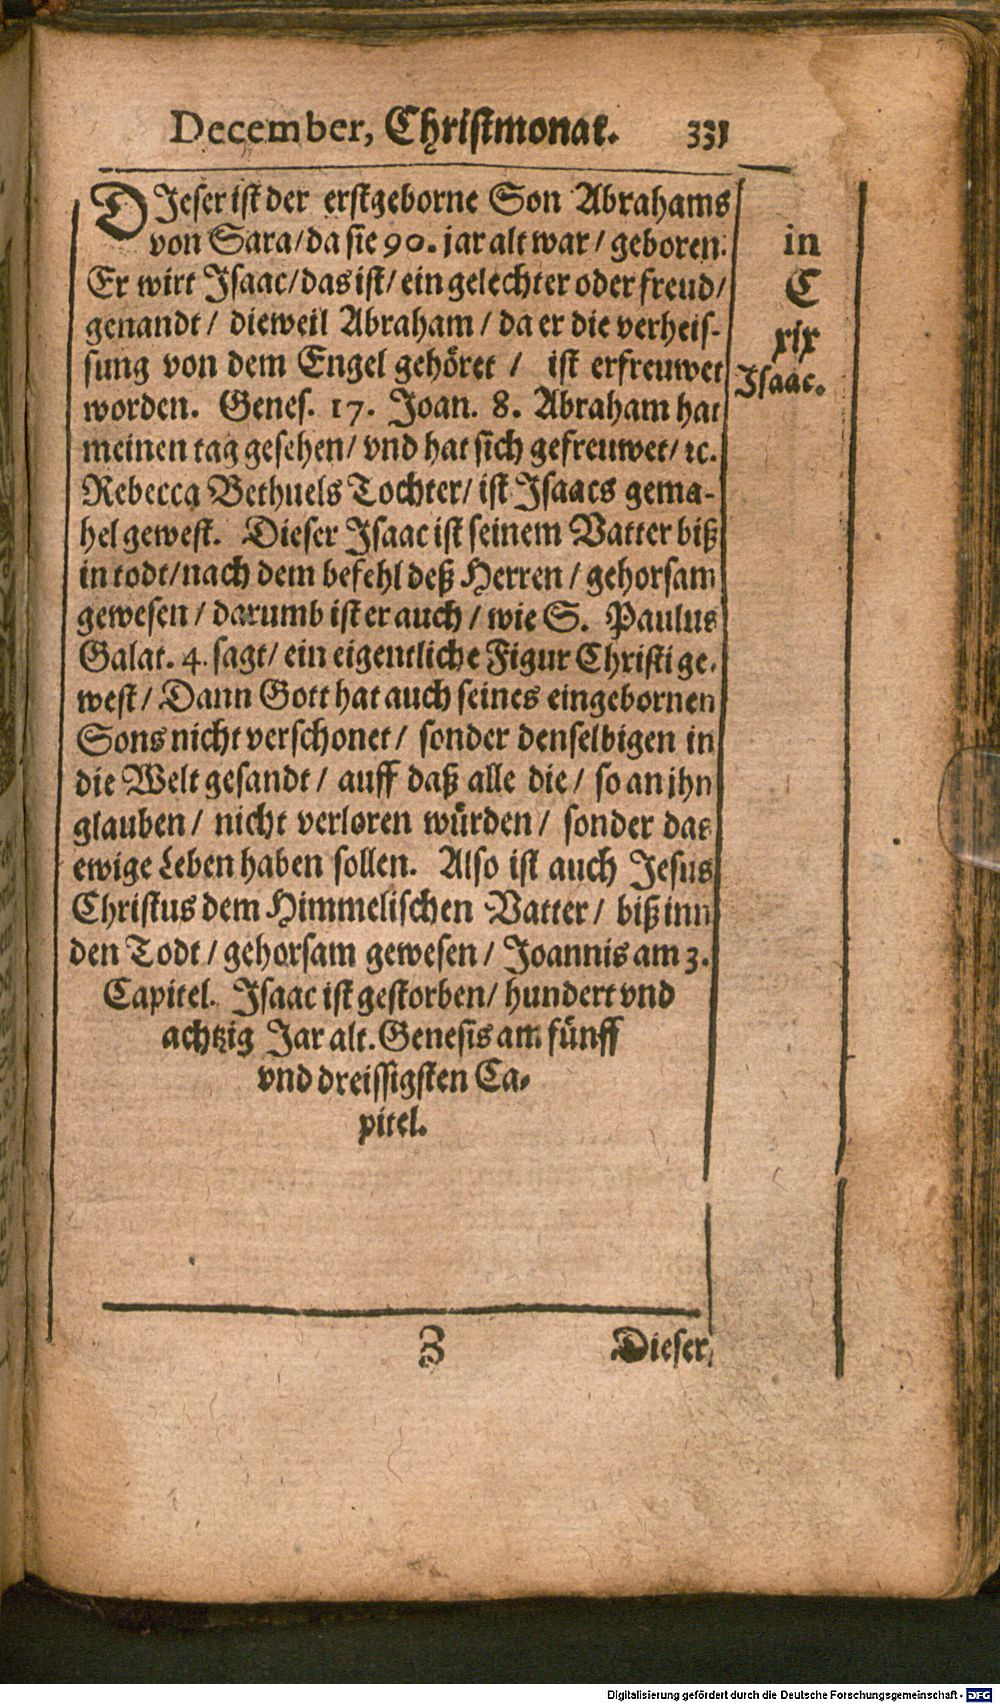 December, Christmonat. 331
DIeser ist der erstgeborne Son Abrahams
von Sara/ da sie 90. jar alt war/ geboren.
Er wirt Isaac/ das ist/ ein gelechter oder freud/
genandt/ dieweil Abraham/ da er die verheis-
sung von dem Engel gehöret/ ist erfreuwet
worden. Genes. 17. Joan. 8. Abraham hat
meinen tag gesehen/ vnd hat sich gefreuwet/ ꝛc.
Rebecca Bethuels Tochter/ ist Isaacs gema-
hel gewest. Dieser Isaac ist seinem Vatter biß
in todt/ nach dem befehl deß Herren/ gehorsam
gewesen/ darumb ist er auch/ wie S. Paulus
Galat. 4. sagt/ ein eigentliche Figur Christi ge-
west/ Dann Gott hat auch seines eingebornen
Sons nicht verschonet/ sonder denselbigen in
die Welt gesandt/ auff daß alle die/ so an jhn
glauben/ nicht verloren würden/ sonder das
ewige Leben haben sollen. Also ist auch Jesus
Christus dem Himmelischen Vatter/ biß inn
den Todt/ gehorsam gewesen/ Joannis am 3.
Capitel. Isaac ist gestorben/ hundert vnd
achtzig Jar alt. Genesis am fünff
vnd dreissigsten Ca-
pitel.
in
C
xix
Isaac.
Z Dieser
Digitalisierung gefördert durch die Deutsche Forschungsgemeinschaft - DFG